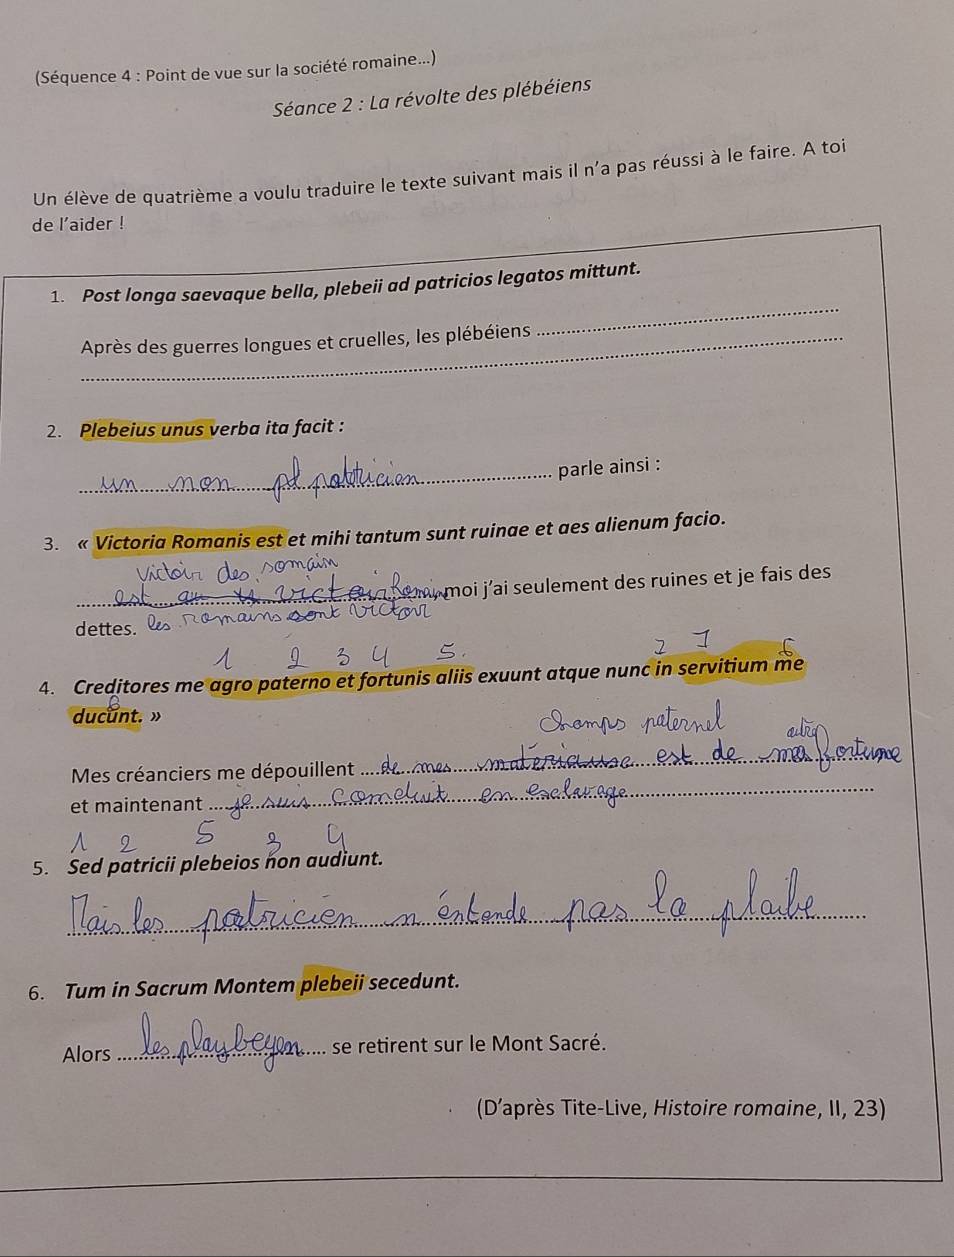 (Séquence 4 : Point de vue sur la société romaine...)
Séance 2 : La révolte des plébéiens
Un élève de quatrième a voulu traduire le texte suivant mais il n'a pas réussi à le faire. A toi
de l'aider !
1. Post longa saevaque bella, plebeii ad patricios legatos mittunt.
Après des guerres longues et cruelles, les plébéiens
2. Plebeius unus verba ita facit :
un non patricien parle ainsi :
3. « Victoria Romanis est et mihi tantum sunt ruinae et aes alienum facio.
Victoir des romain
est moi j'ai seulement des ruines et je fais des
dettes. les romains sont victoir
1 2 3 4 5. 2 1 6
4. Creditores me agro paterno et fortunis aliis exuunt atque nunc in servitium me
ducunt. »
Champs paternel
Mes créanciers me dépouillent de mes est de mes fortune
et maintenant je suis conduit en esclavage
1 2 5 3 4
5. Sed patricii plebeios non audiunt.
Mais les patricien n entende pas la plaibe
6. Tum in Sacrum Montem plebeii secedunt.
Alors les playbeyen se retirent sur le Mont Sacré.
(D'après Tite-Live, Histoire romaine, II, 23)